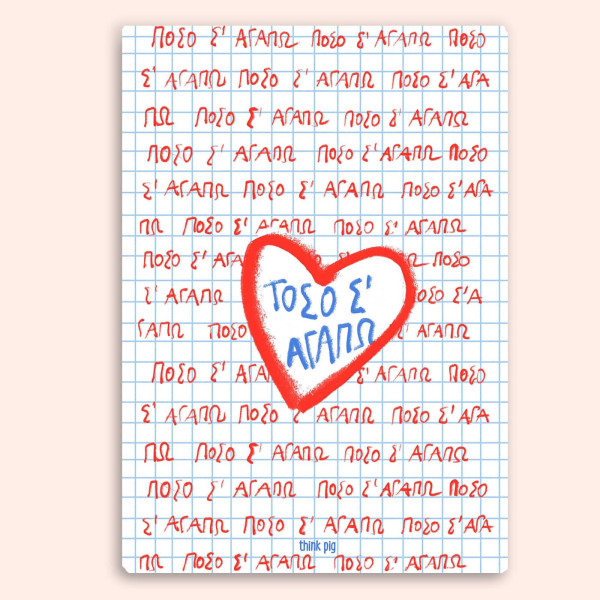 ΠΟΣΟ Σ' ΑΓΑΠΩ ΠΟΣΟ Σ' ΑΓΑΠΩ ΠΟΣΟ
Σ' ΑΓΑΠΩ ΠΟΣΟ Σ' ΑΓΑΠΩ ΠΟΣΟ Σ' ΑΓΑ
ΠΩ ΠΟΣΟ Σ' ΑΓΑΠΩ ΠΟΣΟ Σ' ΑΓΑΠΩ
ΠΟΣΟ Σ' ΑΓΑΠΩ ΠΟΣΟ Σ' ΑΓΑΠΩ ΠΟΣΟ
Σ' ΑΓΑΠΩ ΠΟΣΟ Σ' ΑΓΑΠΩ ΠΟΣΟ Σ' ΑΓΑ
ΠΩ ΠΟΣΟ Σ' ΑΓΑΠΩ ΠΟΣΟ Σ' ΑΓΑΠΩ
ΠΟΣΟ Σ' ΑΓΑ ΠΟΣΟ
Σ' ΑΓΑΠΩ ΟΣΟ Σ'Α
ΓΑΠΩ ΠΟΣΟ ΑΓΑΠΩ
ΤΟΣΟ Σ'
ΑΓΑΠΩ
ΠΟΣΟ Σ' ΑΓΑ ΑΓΑΠΩ ΠΟΣΟ
Σ' ΑΓΑΠΩ ΠΟΣΟ Σ' ΑΓΑΠΩ ΠΟΣΟ Σ' ΑΓΑ
ΠΩ ΠΟΣΟ Σ' ΑΓΑΠΩ ΠΟΣΟ Σ' ΑΓΑΠΩ
ΠΟΣΟ Σ' ΑΓΑΠΩ ΠΟΣΟ Σ' ΑΓΑΠΩ ΠΟΣΟ
Σ' ΑΓΑΠΩ ΠΟΣΟ Σ' ΑΓΑΠΩ ΠΟΣΟ Σ' ΑΓΑ
think pig
ΠΩ ΠΟΣΟ Σ' ΑΓΑΠΩ ΠΟΣΟ Σ' ΑΓΑΠΩ